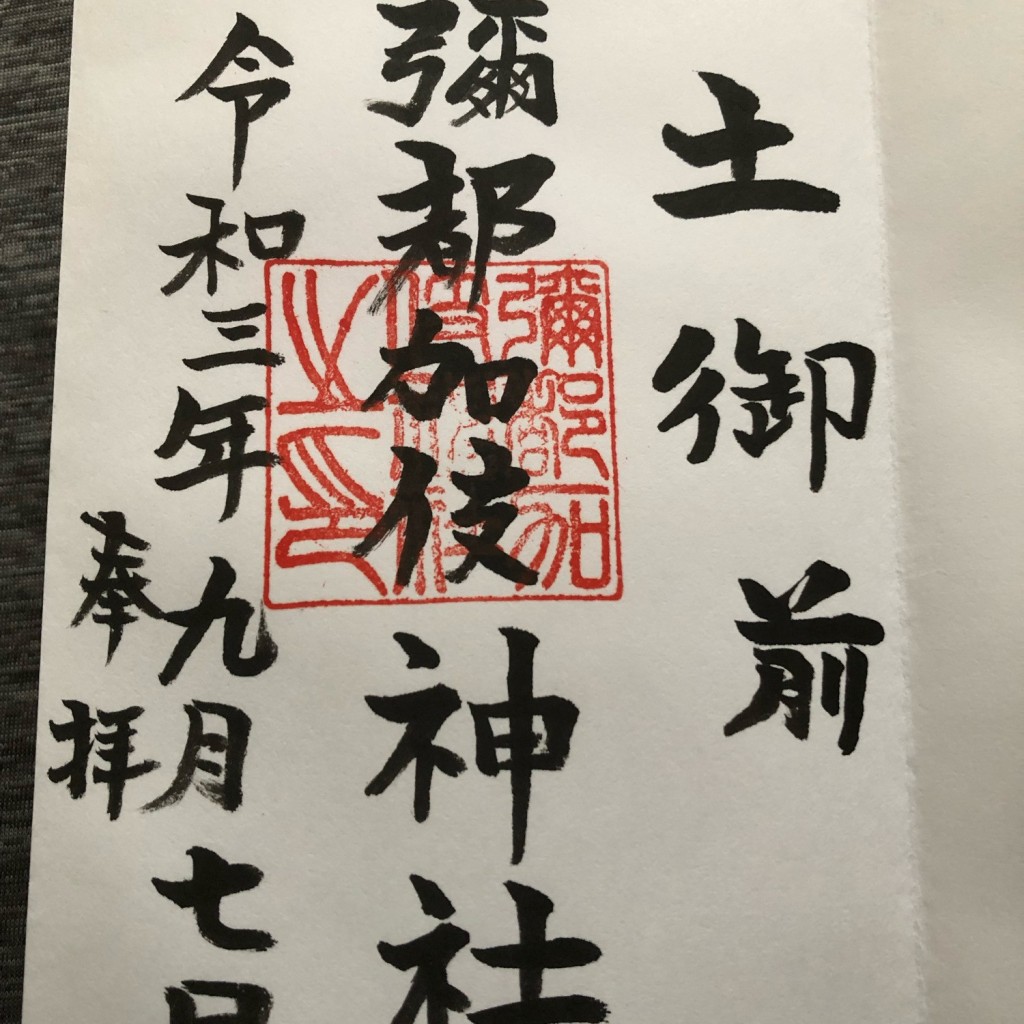 土御前
彌都加伎神社
令和三年九月七日
奉拝
彌都加
伎神社
之印